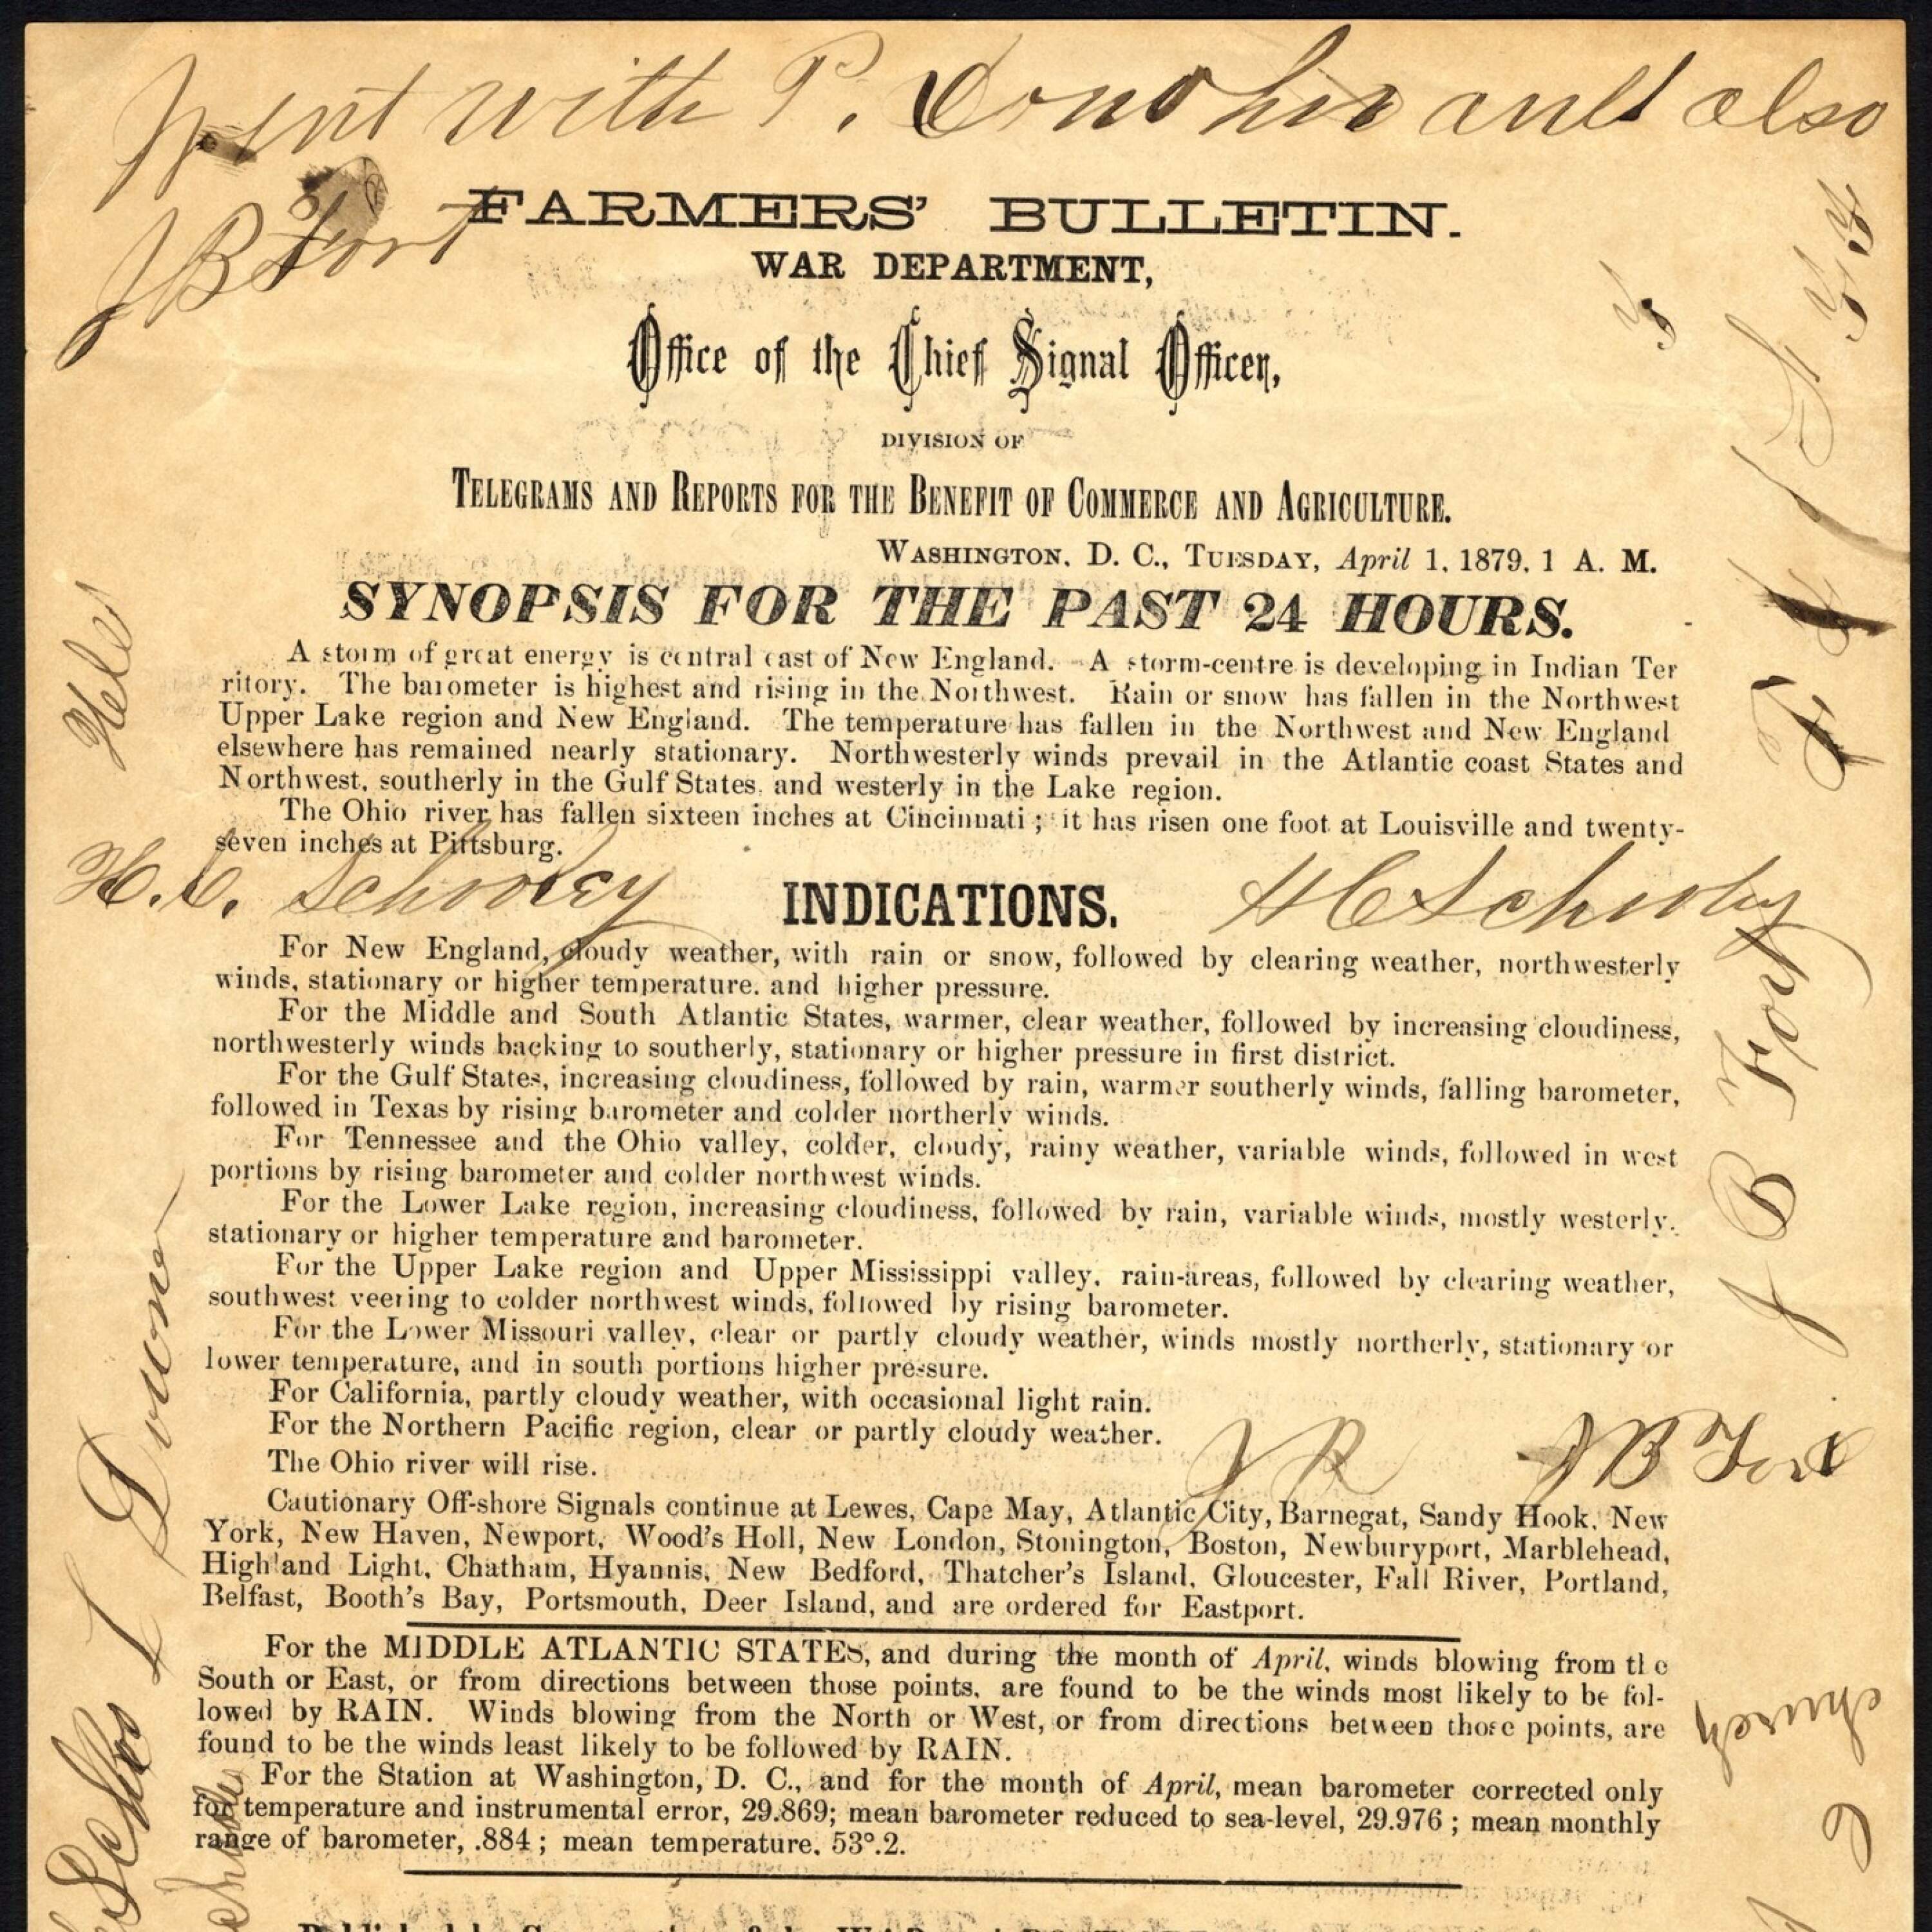 went with P. Donohue and also
JB Fort
FARMERS' BULLETIN.
WAR DEPARTMENT,
Office of the Chief Signal Officer,
DIVISION OF
TELEGRAMS AND REPORTS FOR THE BENEFIT OF COMMERCE AND AGRICULTURE.
WASHINGTON, D. C., TUESDAY, April 1, 1879, 1 A. M.
SYNOPSIS FOR THE PAST 24 HOURS.
A storm of great energy is central east of New England. A storm-centre is developing in Indian Ter
ritory. The barometer is highest and rising in the Northwest. Rain or snow has fallen in the Northwest
Upper Lake region and New England. The temperature has fallen in the Northwest and New England
elsewhere has remained nearly stationary. Northwesterly winds prevail in the Atlantic coast States and
Northwest, southerly in the Gulf States, and westerly in the Lake region.
The Ohio river has fallen sixteen inches at Cincinnati; it has risen one foot at Louisville and twenty-
seven inches at Pittsburg.
H.C. Schooley
INDICATIONS.
HC Schooley
For New England, cloudy weather, with rain or snow, followed by clearing weather, northwesterly
winds, stationary or higher temperature, and higher pressure.
For the Middle and South Atlantic States, warmer, clear weather, followed by increasing cloudiness,
northwesterly winds backing to southerly, stationary or higher pressure in first district.
For the Gulf States, increasing cloudiness, followed by rain, warmer southerly winds, falling barometer,
followed in Texas by rising barometer and colder northerly winds.
For Tennessee and the Ohio valley, colder, cloudy, rainy weather, variable winds, followed in west
portions by rising barometer and colder northwest winds.
For the Lower Lake region, increasing cloudiness, followed by rain, variable winds, mostly westerly,
stationary or higher temperature and barometer.
For the Upper Lake region and Upper Mississippi valley, rain-areas, followed by clearing weather,
southwest veering to colder northwest winds, followed by rising barometer.
For the Lower Missouri valley, clear or partly cloudy weather, winds mostly northerly, stationary or
lower temperature, and in south portions higher pressure.
For California, partly cloudy weather, with occasional light rain.
For the Northern Pacific region, clear or partly cloudy weather.
The Ohio river will rise.
JB Fort
Cautionary Off-shore Signals continue at Lewes, Cape May, Atlantic City, Barnegat, Sandy Hook, New
York, New Haven, Newport, Wood's Holl, New London, Stonington, Boston, Newburyport, Marblehead,
Highland Light, Chatham, Hyannis, New Bedford, Thatcher's Island, Gloucester, Fall River, Portland,
Belfast, Booth's Bay, Portsmouth, Deer Island, and are ordered for Eastport.
For the MIDDLE ATLANTIC STATES, and during the month of April, winds blowing from the
South or East, or from directions between those points, are found to be the winds most likely to be fol-
lowed by RAIN. Winds blowing from the North or West, or from directions between those points, are
found to be the winds least likely to be followed by RAIN.
For the Station at Washington, D. C., and for the month of April, mean barometer corrected only
for temperature and instrumental error, 29.869; mean barometer reduced to sea-level, 29.976; mean monthly
range of barometer, .884; mean temperature, 53°.2.
J B Fort
church